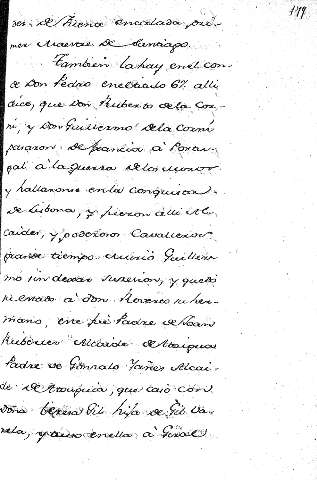 179
der: de Fuente encalada pri-
mer Maestre de Santiago.
Tambien la hay en el con-
de Don Pedro en el titulo 67 alli
dice, que Don Ruberto de la Cor-
ni, y Don Guillermo de la Corni
pasaron de francia à Portu-
gal à la guerra de los moros
y hallaronse en la conquista
de Lisbona, y fueron alli Al-
caides, y poderosos Cavalleros
tiempo murió Guiller-
mo sin dexar succesion, y quedó
su estado à don Roverto su her-
mano, este fue Padre de Joan
Ruberies Alcaide de Atouguia
Padre de Gonzalo Yañes Alcai-
de de Atouguia, que casó con
Doña Teresa Gil hija de Gil Va-
rela, y tuvo en ella à